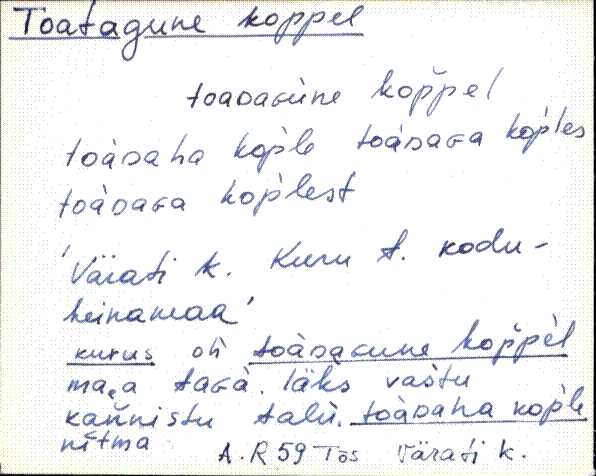 Toatagune koppel
toaᴅaɢùne kop̆pel
toàᴅaha kop̀le toàᴅaɢa kop̀les
toàᴅaɢa kop̀lest
'Värati k. Kuru t. kodu-
heinamaa'
kurus oĺi toàᴅaɢune kop̆pèl
maja taɢà. läks vaštu
kaǹnistu talù. toàᴅaha kop̀le
nìtma A.R 59 Tõs Värati k.